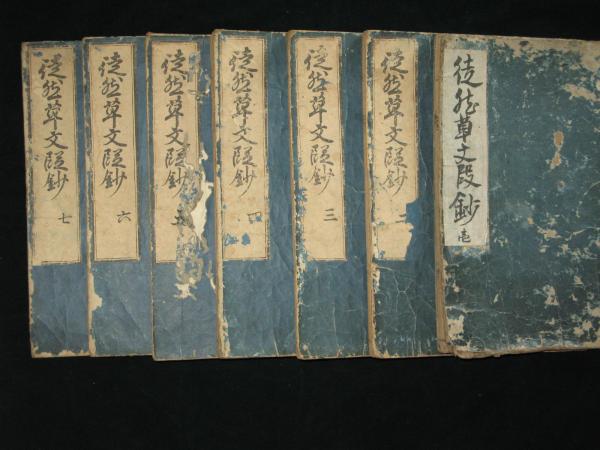 徒然草文段鈔 壱
徒然草文段鈔 二
徒然草文段鈔 三
徒然草文段鈔 四
徒然草文段鈔 五
徒然草文段鈔 六
徒然草文段鈔 七